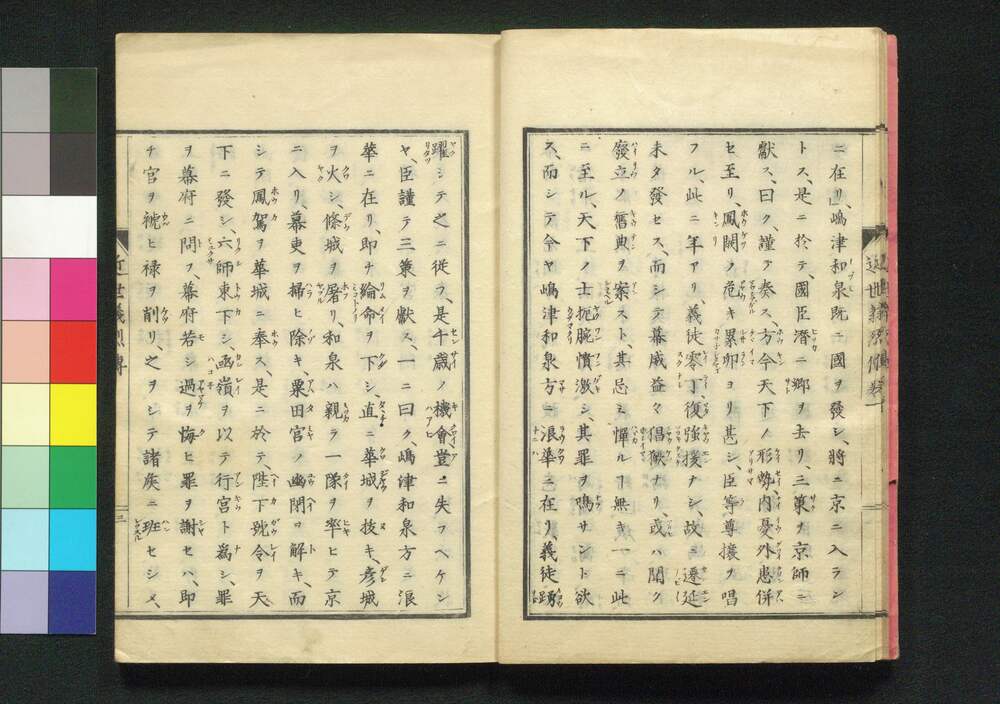 ニ在リ」嶋津和泉既ニ國ヲ發シ、將ニ京ニ入ラン
トス、是ニ於テ、國臣潜ニ郷ヲ去リ、三策ヲ京師ニ
獻ス、曰ク、謹テ奏ス、方今天下ノ形勢、内憂外患併
セ至リ、鳳闕ノ危キ累卵ヨリ甚シ、臣等尊攘ヲ唱
フル、此ニ年アリ、義徒零丁、復強援ナシ、故ニ遷延
未タ發セス、而シテ幕威益々倡獗ナリ、或ハ聞ク
發立ノ舊典ヲ案スト、其忌ミ憚ルヿ無キ一ニ此
ニ至ル、天下ノ士扼腕憤激シ、其罪ヲ鳴サント欲
ス、而シテ今ヤ嶋津和泉方ニ浪華ニ在リ、義徒踴
躍シテ之ニ從フ、是千歳ノ機會豈ニ失フヘケン
ヤ、臣謹テ三策ヲ獻ス、一ニ曰ク、嶋津和泉方ニ浪
華ニ在リ、即チ綸命ヲ下シ、直ニ華城ヲ抜キ、彦城
ヲ火シ、條城ヲ屠リ、和泉ハ親ラ一隊ヲ率ヒテ京
ニ入リ、幕吏ヲ掃ヒ除キ、粟田宮ノ幽閉ヲ解キ、而
シテ鳳駕ヲ華城ニ奉ス、是ニ於テ、陛下號令ヲ天
下ニ發シ、六師東下シ、凾嶺ヲ以テ行宮ト爲シ、罪
ヲ幕府ニ問フ、幕府若シ過ヲ悔ヒ罪ヲ謝セハ、即
チ官ヲ褫ヒ禄ヲ削リ、之ヲシテ諸矦ニ班セシメ、
近世義烈傳
三